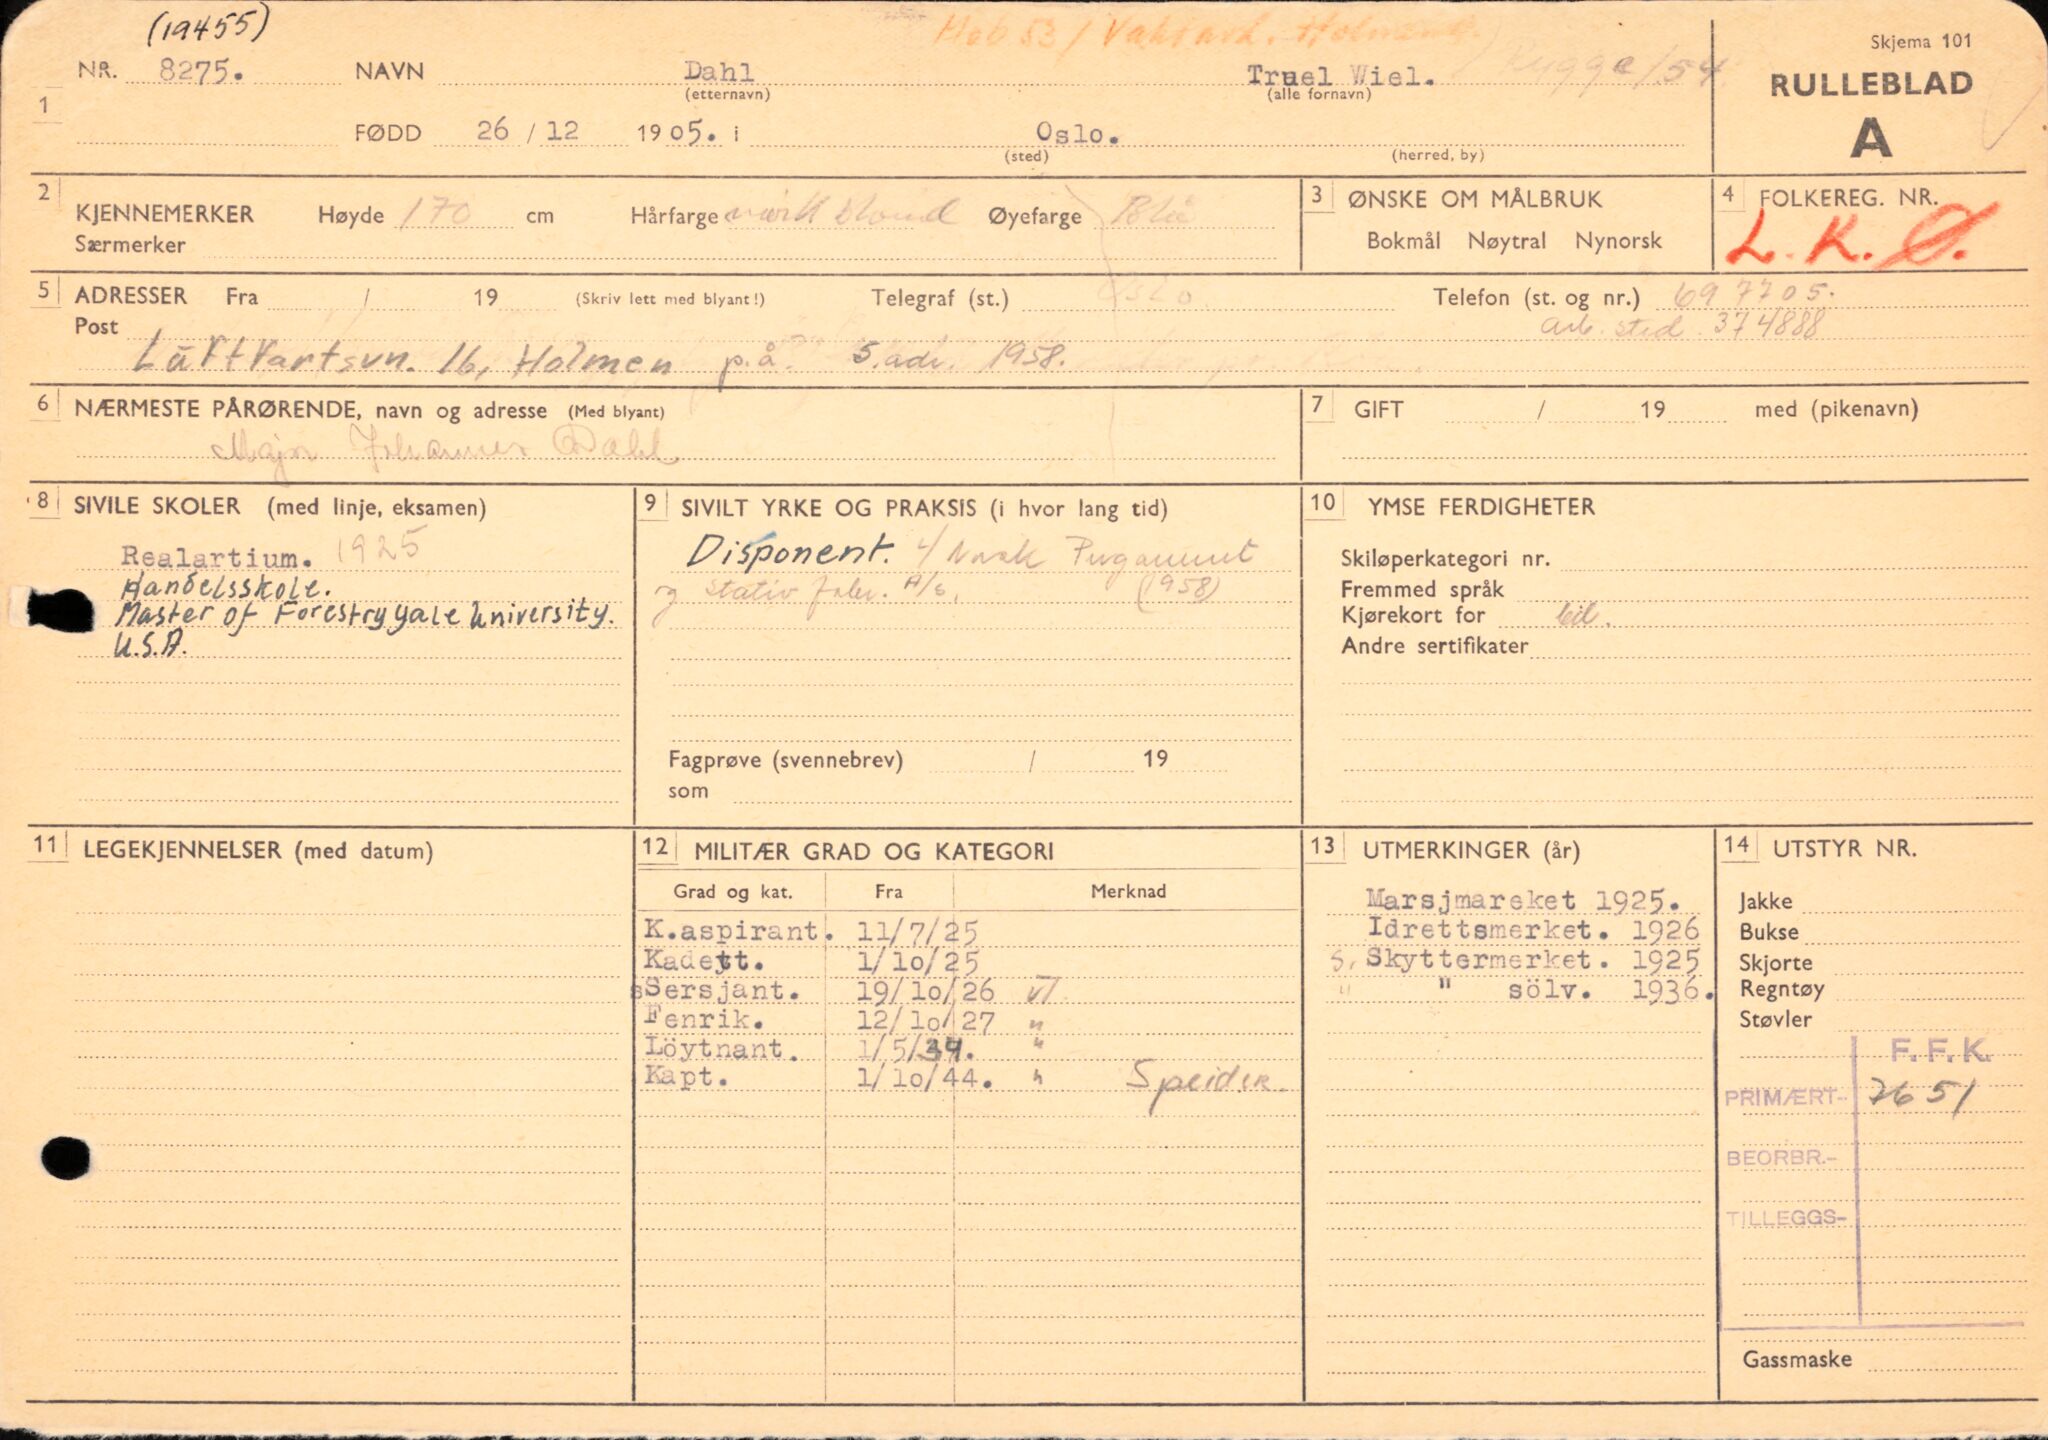 (19455)
Skjema 101
NR. 8275. NAVN Dahl Truel Wiel. Rygge/54
(etternavn) (alle fornavn)
RULLEBLAD
A
1
FØDD 26 / 12 1905. i Oslo.
(sted) (herred, by)
2 KJENNEMERKER Høyde 170 cm Hårfarge mørk blond Øyefarge Blå
Særmerker
3 ØNSKE OM MÅLBRUK
Bokmål Nøytral Nynorsk
4 FOLKEREG. NR.
L. K. Ø.
5 ADRESSER Fra / 19 (Skriv lett med blyant!) Telegraf (st.) Oslo Telefon (st. og nr.) 697705.
Post arb. sted. 374888
Luftfartsvn. 16, Holmen p.å. 5. adv. 1958.
6 NÆRMESTE PÅRØRENDE, navn og adresse (Med blyant)
Major Johannes Dahl
7 GIFT / 19 med (pikenavn)
8 SIVILE SKOLER (med linje, eksamen)
Realartium. 1925
Handelsskole.
Master of Forestry Yale University.
U.S.A.
9 SIVILT YRKE OG PRAKSIS (i hvor lang tid)
Disponent. Norsk
og Stativ A/S. (1958)
Fagprøve (svennebrev) / 19
som
10 YMSE FERDIGHETER
Skiløperkategori nr.
Fremmed språk
Kjørekort for bil.
Andre sertifikater
11 LEGEKJENNELSER (med datum)
12 MILITÆR GRAD OG KATEGORI
Grad og kat. Fra Merknad
K.aspirant. 11/7/25
Kadett. 1/10/25
sSersjant. 19/10/26 VI.
Fenrik. 12/10/27 "
Löytnant. 1/5/34. "
Kapt. 1/10/44. " Speider.
13 UTMERKINGER (år)
Marsjmareket 1925.
Idrettsmerket. 1926
S. Skyttermerket. 1925
" " sölv. 1936.
14 UTSTYR NR.
Jakke
Bukse
Skjorte
Regntøy
Støvler
F. F. K.
PRIMÆRT- 7651
BEORBR.-
TILLEGGS-
Gassmaske